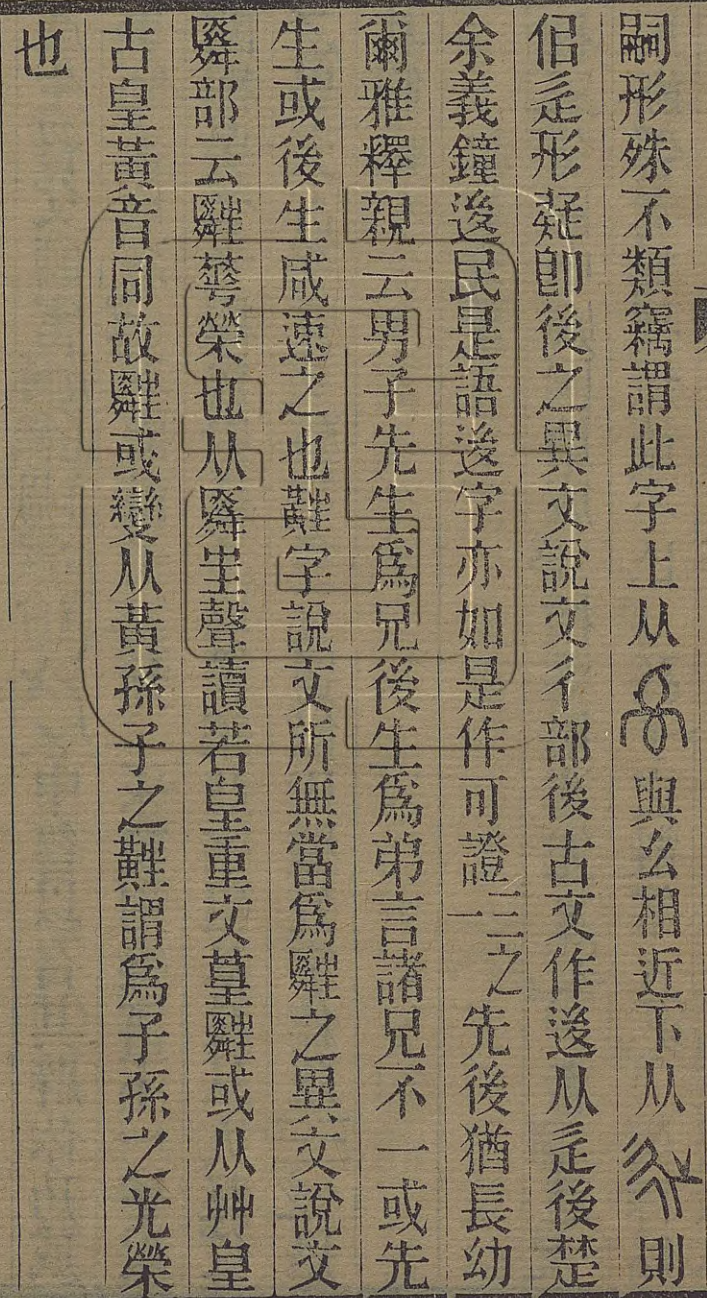 嗣形殊不類竊謂此字上从與幺相近下从則
侣辵形疑卽後之異文說文彳部後古文作𨒥从辵後楚
余義鐘𨒥民是語𨒥字亦如是作可證三一之先後猶長幼
爾雅釋親云男子先生爲兄後生爲弟言諸兄不一或先
生或後生咸速之也㞷字說文所無當爲𦾓之異文說文
𦾓部云𦾓華榮也从舜㞷聲讀若皇重文葟𦾓或从艸皇
古皇黃音同故𦾓或變从黃孫子之謂爲子孫之光榮
也